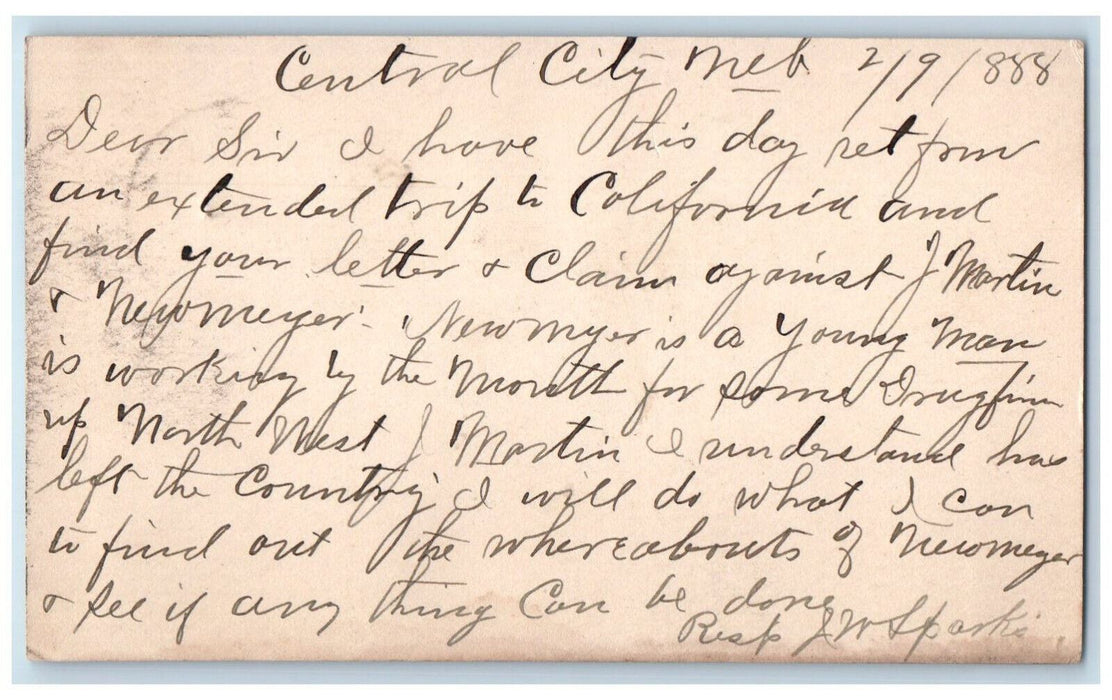 Central City Neb 2/9/888
Dear Sir I have this day ret from
an extended trip to California and
find your letter & Claim against J Martin
& Newmeyer. Newmyer is a Young Man
is working by the Month for some Drugfirm
up North West J Martin I understand has
left the Country I will do what I can
to find out the whereabouts of Newmeyer
& see if any thing Can be done
Resp J W Sparks